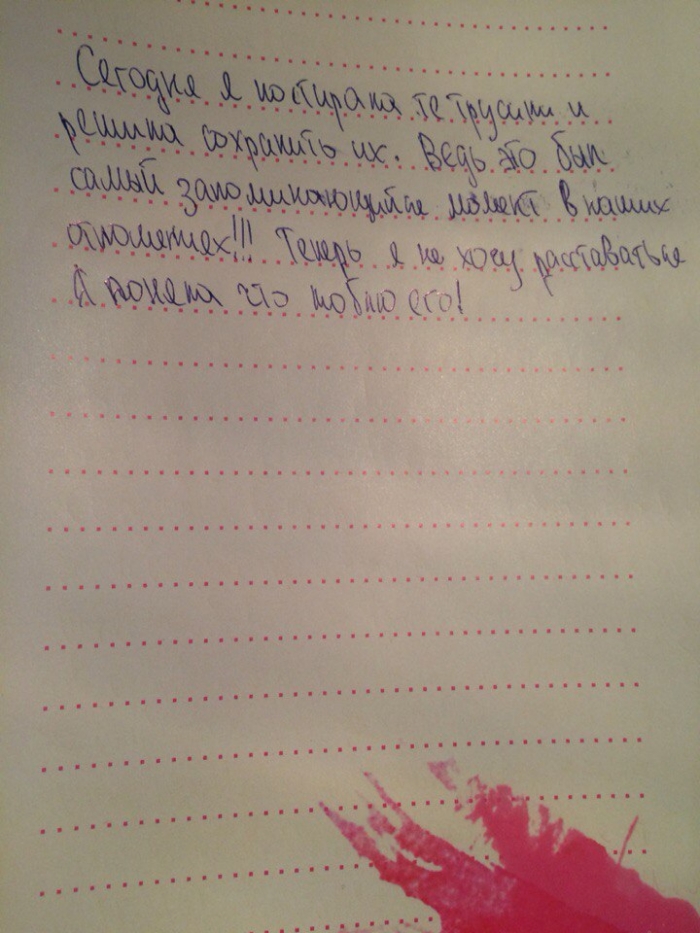 Сегодня я постирала те трусики и
решила сохранить их. Ведь это был
самый запоминающийся момент в наших
отношениях!!! Теперь я не хочу расставаться
Я поняла что люблю его!